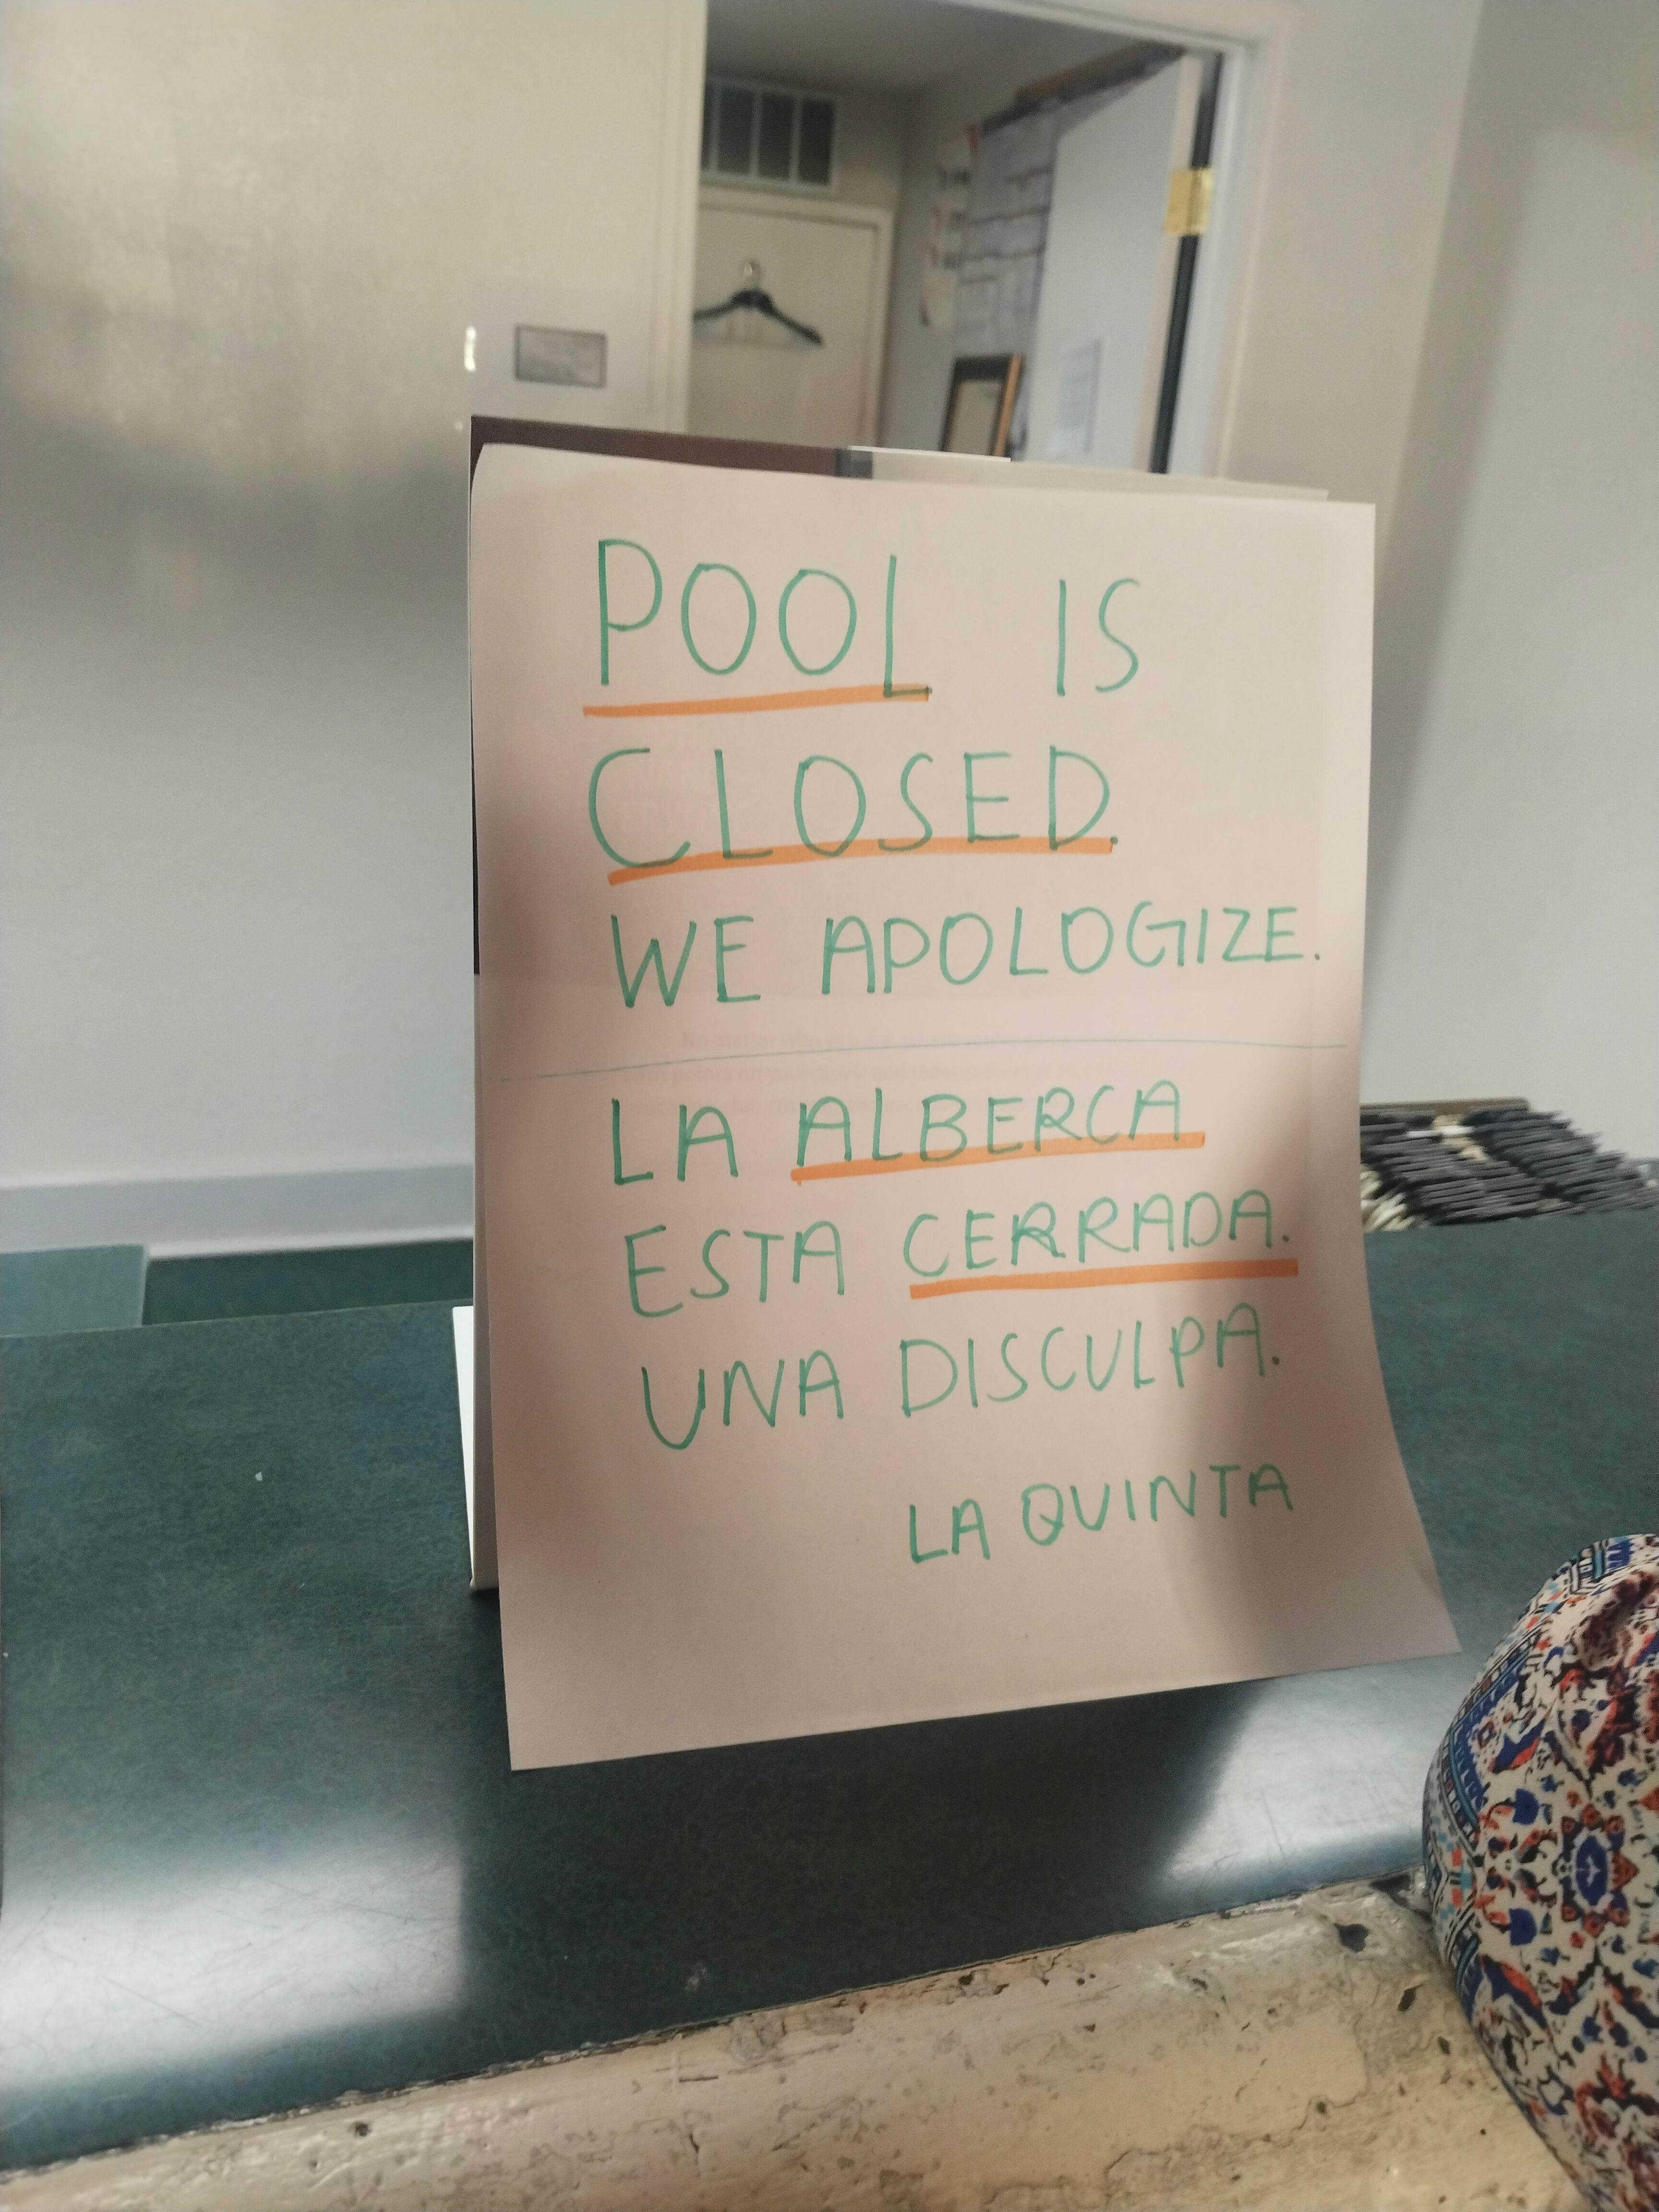 POOL IS
CLOSED.
WE APOLOGIZE.
LA ALBERCA
ESTA CERRADA.
UNA DISCULPA.
LA QUINTA